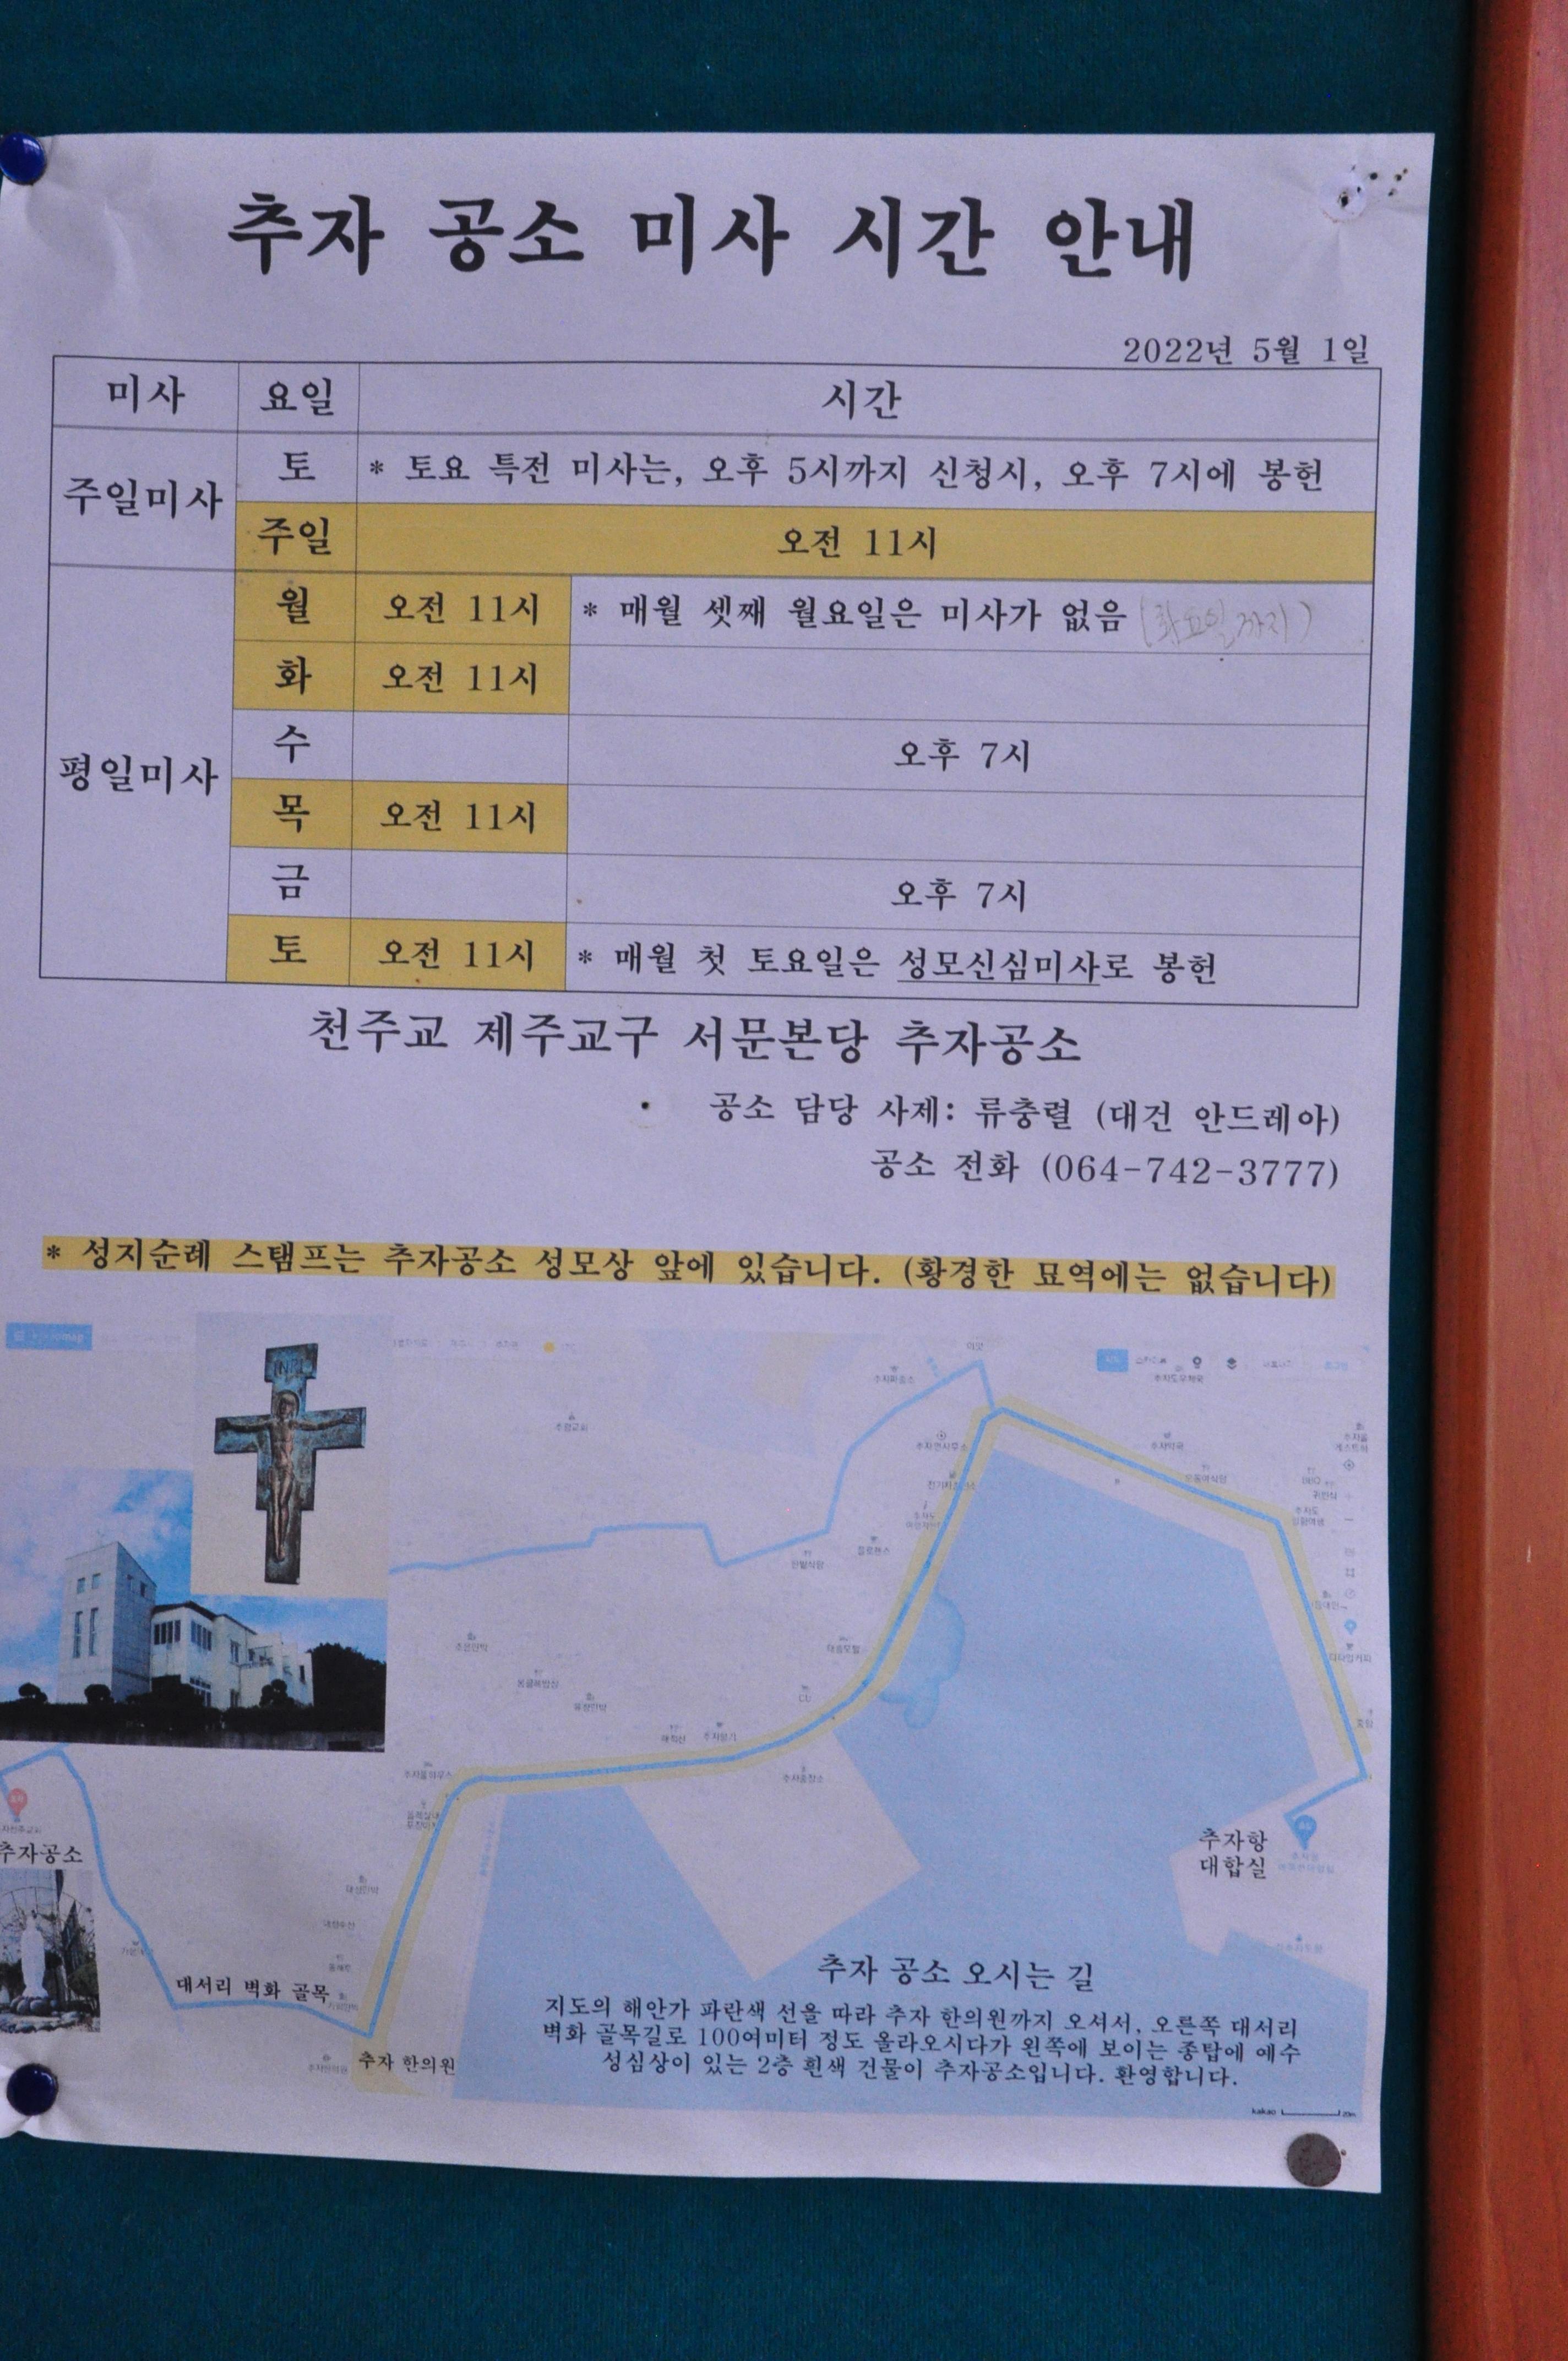 추자 공소 미사 시간 안내
2022년 5월 1일
미사 요일 시간
주일미사
토 * 토요 특전 미사는, 오후 5시까지 신청시, 오후 7시에 봉헌
주일 오전 11시
평일미사
월 오전 11시 * 매월 셋째 월요일은 미사가 없음 (화요일까지)
화 오전 11시
수 오후 7시
목 오전 11시
금 오후 7시
토 오전 11시 * 매월 첫 토요일은 성모신심미사로 봉헌
천주교 제주교구 서문본당 추자공소
공소 담당 사제: 류충렬 (대건 안드레아)
공소 전화 (064-742-3777)
* 성지순례 스탬프는 추자공소 성모상 앞에 있습니다. (황경한 묘역에는 없습니다)
추자공소
추자항
대합실
대서리 벽화 골목
추자 한의원
CU
추자 공소 오시는 길
지도의 해안가 파란색 선을 따라 추자 한의원까지 오셔서, 오른쪽 대서리
벽화 골목길로 100여미터 정도 올라오시다가 왼쪽에 보이는 종탑에 예수
성심상이 있는 2층 흰색 건물이 추자공소입니다. 환영합니다.
kakao